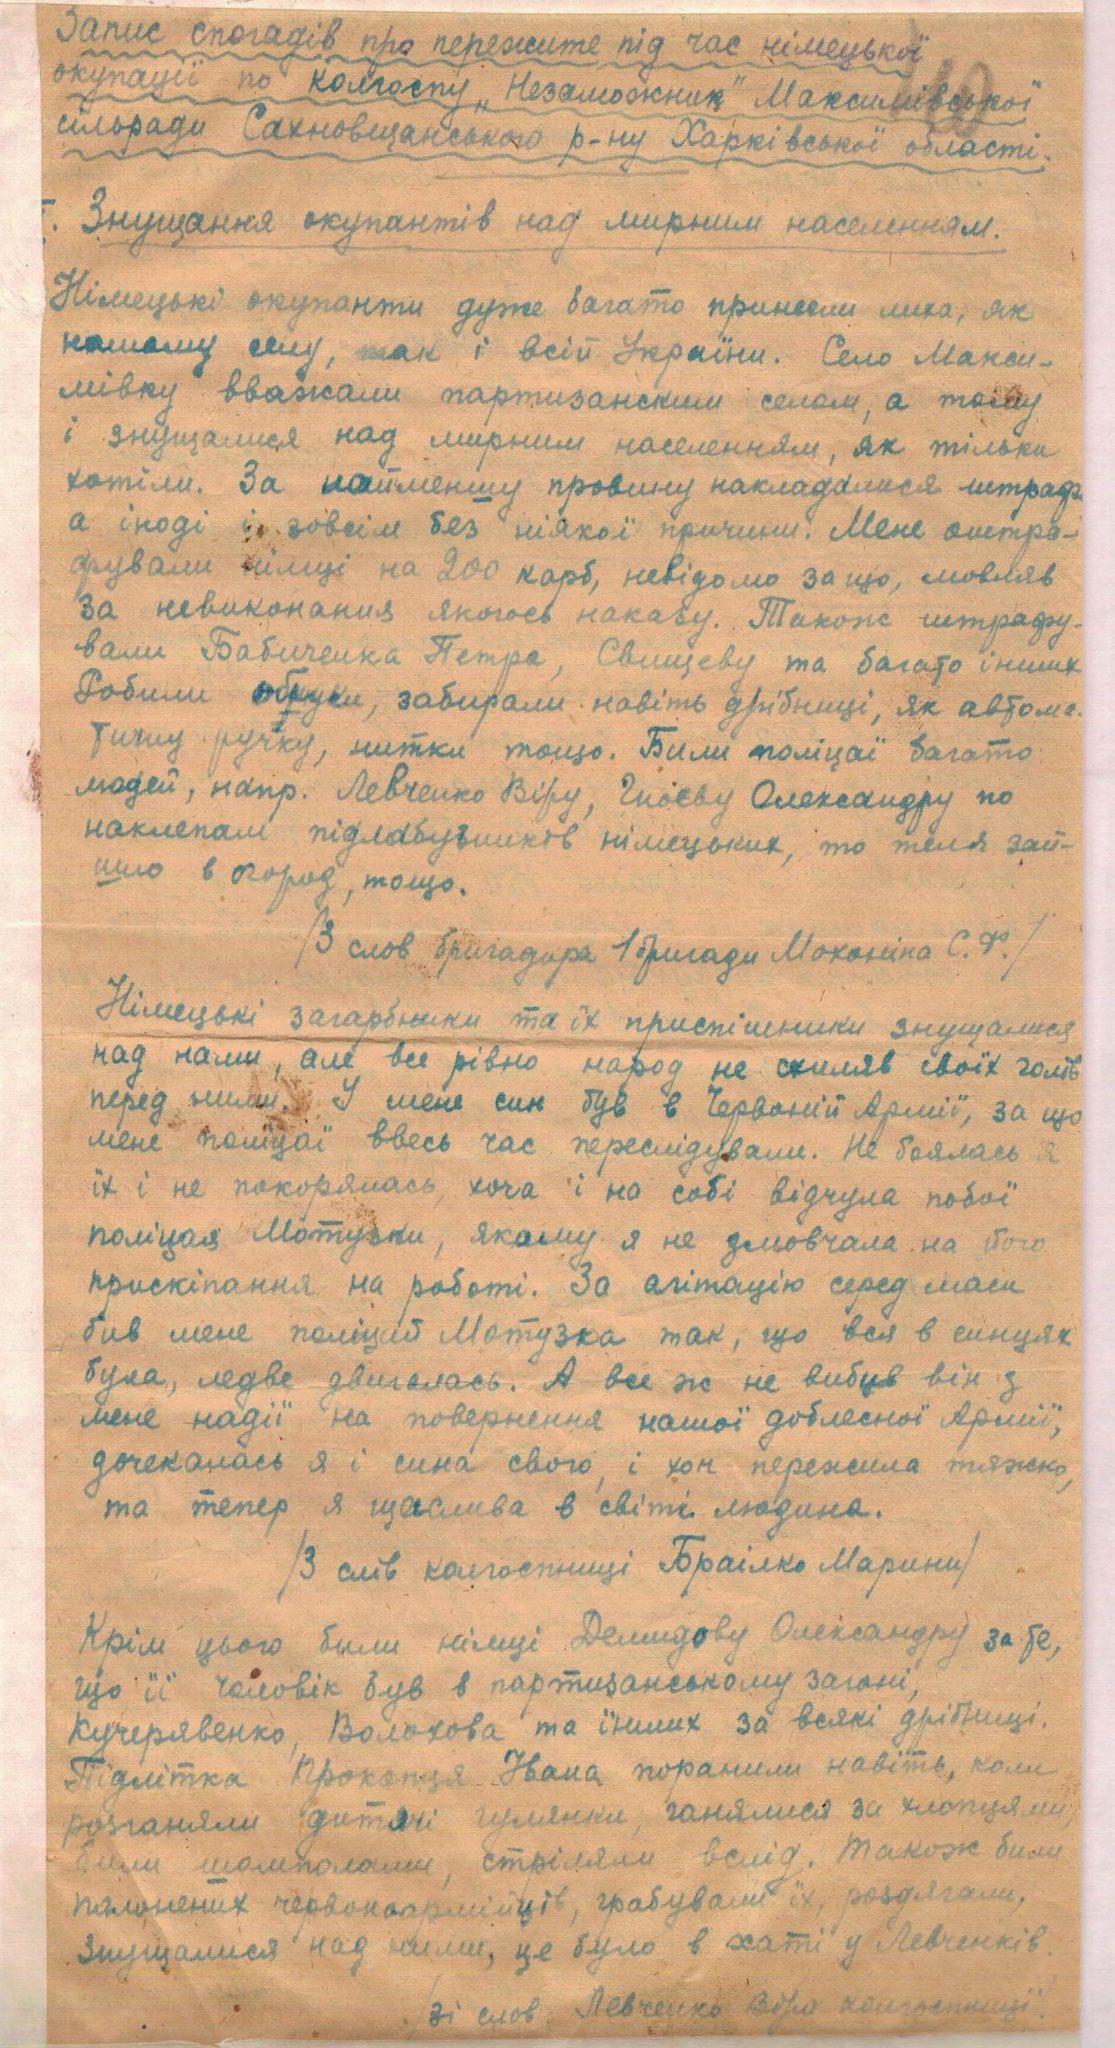 Запис спогадів про пережите під час німецької
окупації по колгоспу „Незаможник" Максимівської
сільради Сахновщанського р-ну Харківської області.
I. Знущання окупантів над мирним населенням.
Німецькі окупанти дуже багато принесли лиха, як
нашому селу, так і всій Україні. Село Макси-
мівку вважали партизанским селом, а тому
і знущалися над мирним населенням, як тільки
хотіли. За найменшу провину накладалися штрафи
а іноді і зовсім без ніякої причини. Мене оштра-
фували німці на 200 карб, невідомо за що, мовляв
за невиконання якогось наказу. Також штрафу-
вали Бабиченка Петра, Свищеву та багато інших
Робили обшуки, забирали навіть дрібниці, як автома-
тичну ручку, нитки тощо. Били поліцаї багато
людей, напр. Левченко Віру, Гноєву Олександру по
наклепам підлабузників німецьких, то теля зай-
шло в огород, тощо.
/З слов бригадира 1 бригади Мохоніна С. Ф./
Німецькі загарбники та їх приспішники знущалися
над нами, але все рівно народ не схиляв своїх голів
перед ними. У мене син був в Червоній Армії, за що
мене поліцаї ввесь час переслідували. Не боялась я
їх і не покорялась, хоча і на собі відчула побої
поліцая Мотузки, якому я не змовчала на його
прискіпання на роботі. За агітацію серед маси
бив мене поліцай Мотузка так, що вся в синцях
була, ледве двигалась. А все ж не вибив він з
мене надії на повернення нашої доблесної Армії,
дочекалась я і сина свого, і хоч пережила тяжко,
та тепер я щаслива в світі людина.
/З слів колгоспниці Браілко Марини/
Крім цього били німці Демидову Олександру за те,
що її чоловік був в партизанському загоні,
Кучерявенко, Волохова та інших за всякі дрібниці.
Підлітка Прокопця Івана поранили навіть, коли
розганяли дитячі гулянки, ганялися за хлопцями,
били шомполами, стріляли вслід. Також били
полонених червоноармійців, грабували їх, роздягали,
знущалися над ними, це було в хаті у Левченків.
/зі слов Левченко Віри колгоспниці/